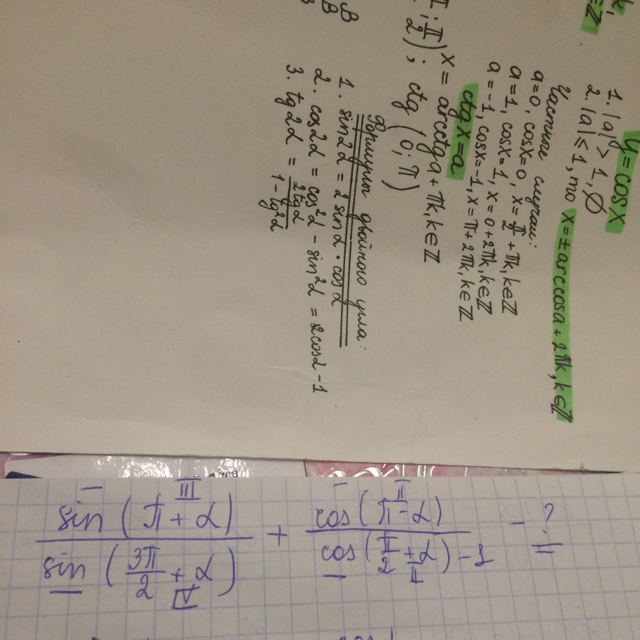 y = cosx
1. |a| > 1, ∅
2. |a| ≤ 1, то x = ± arccosa + 2πk, k∈ℤ
Частные случаи:
a=0, cosx=0, x = π/2 + πk, k∈ℤ
a=1, cosx=1, x = 0+2πk, k∈ℤ
a=-1, cosx=-1, x = π+2πk, k∈ℤ
ctgx=a
x = arcctga + πk, k∈ℤ
; π/2); ctg (0; π)
Формулы двойного угла:
1. sin2α = 2 sinα · cosα
2. cos2α = cos²α - sin²α = 2cosα - 1
3. tg2α = 2tgα / 1-tg²α
sin (π + α) / sin (3π/2 + α) + cos (π - α) / cos (π/2 + α) - 1 - ?